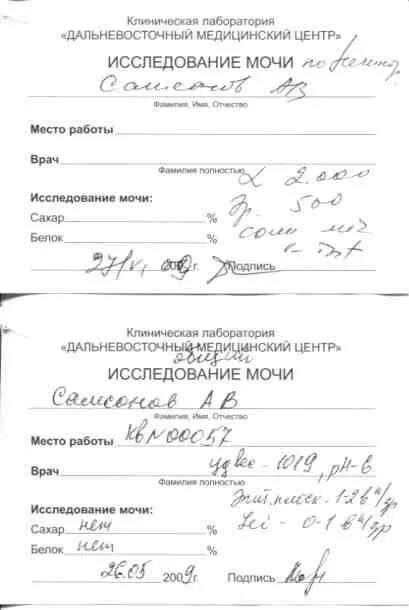 Клиническая лаборатория
«ДАЛЬНЕВОСТОЧНЫЙ МЕДИЦИНСКИЙ ЦЕНТР»
ИССЛЕДОВАНИЕ МОЧИ по
Самсонов АВ
Фамилия, Имя, Отчество
Место работы
Врач
Фамилия полностью
L 2.000
Исследование мочи: Эр. 500
Сахар % соли моч
Белок %
27/V 2009г. Подпись
Клиническая лаборатория
«ДАЛЬНЕВОСТОЧНЫЙ МЕДИЦИНСКИЙ ЦЕНТР»
общий
ИССЛЕДОВАНИЕ МОЧИ
Самсонов АВ
Фамилия, Имя, Отчество
Место работы КВN00057
Врач уд вес - 1019, pH-6
Фамилия полностью
Эпит. плоск. - 1-2 в п/зр
Исследование мочи: Lei - 0-1 в п/зр
Сахар нет %
Белок нет %
26.05 2009г. Подпись